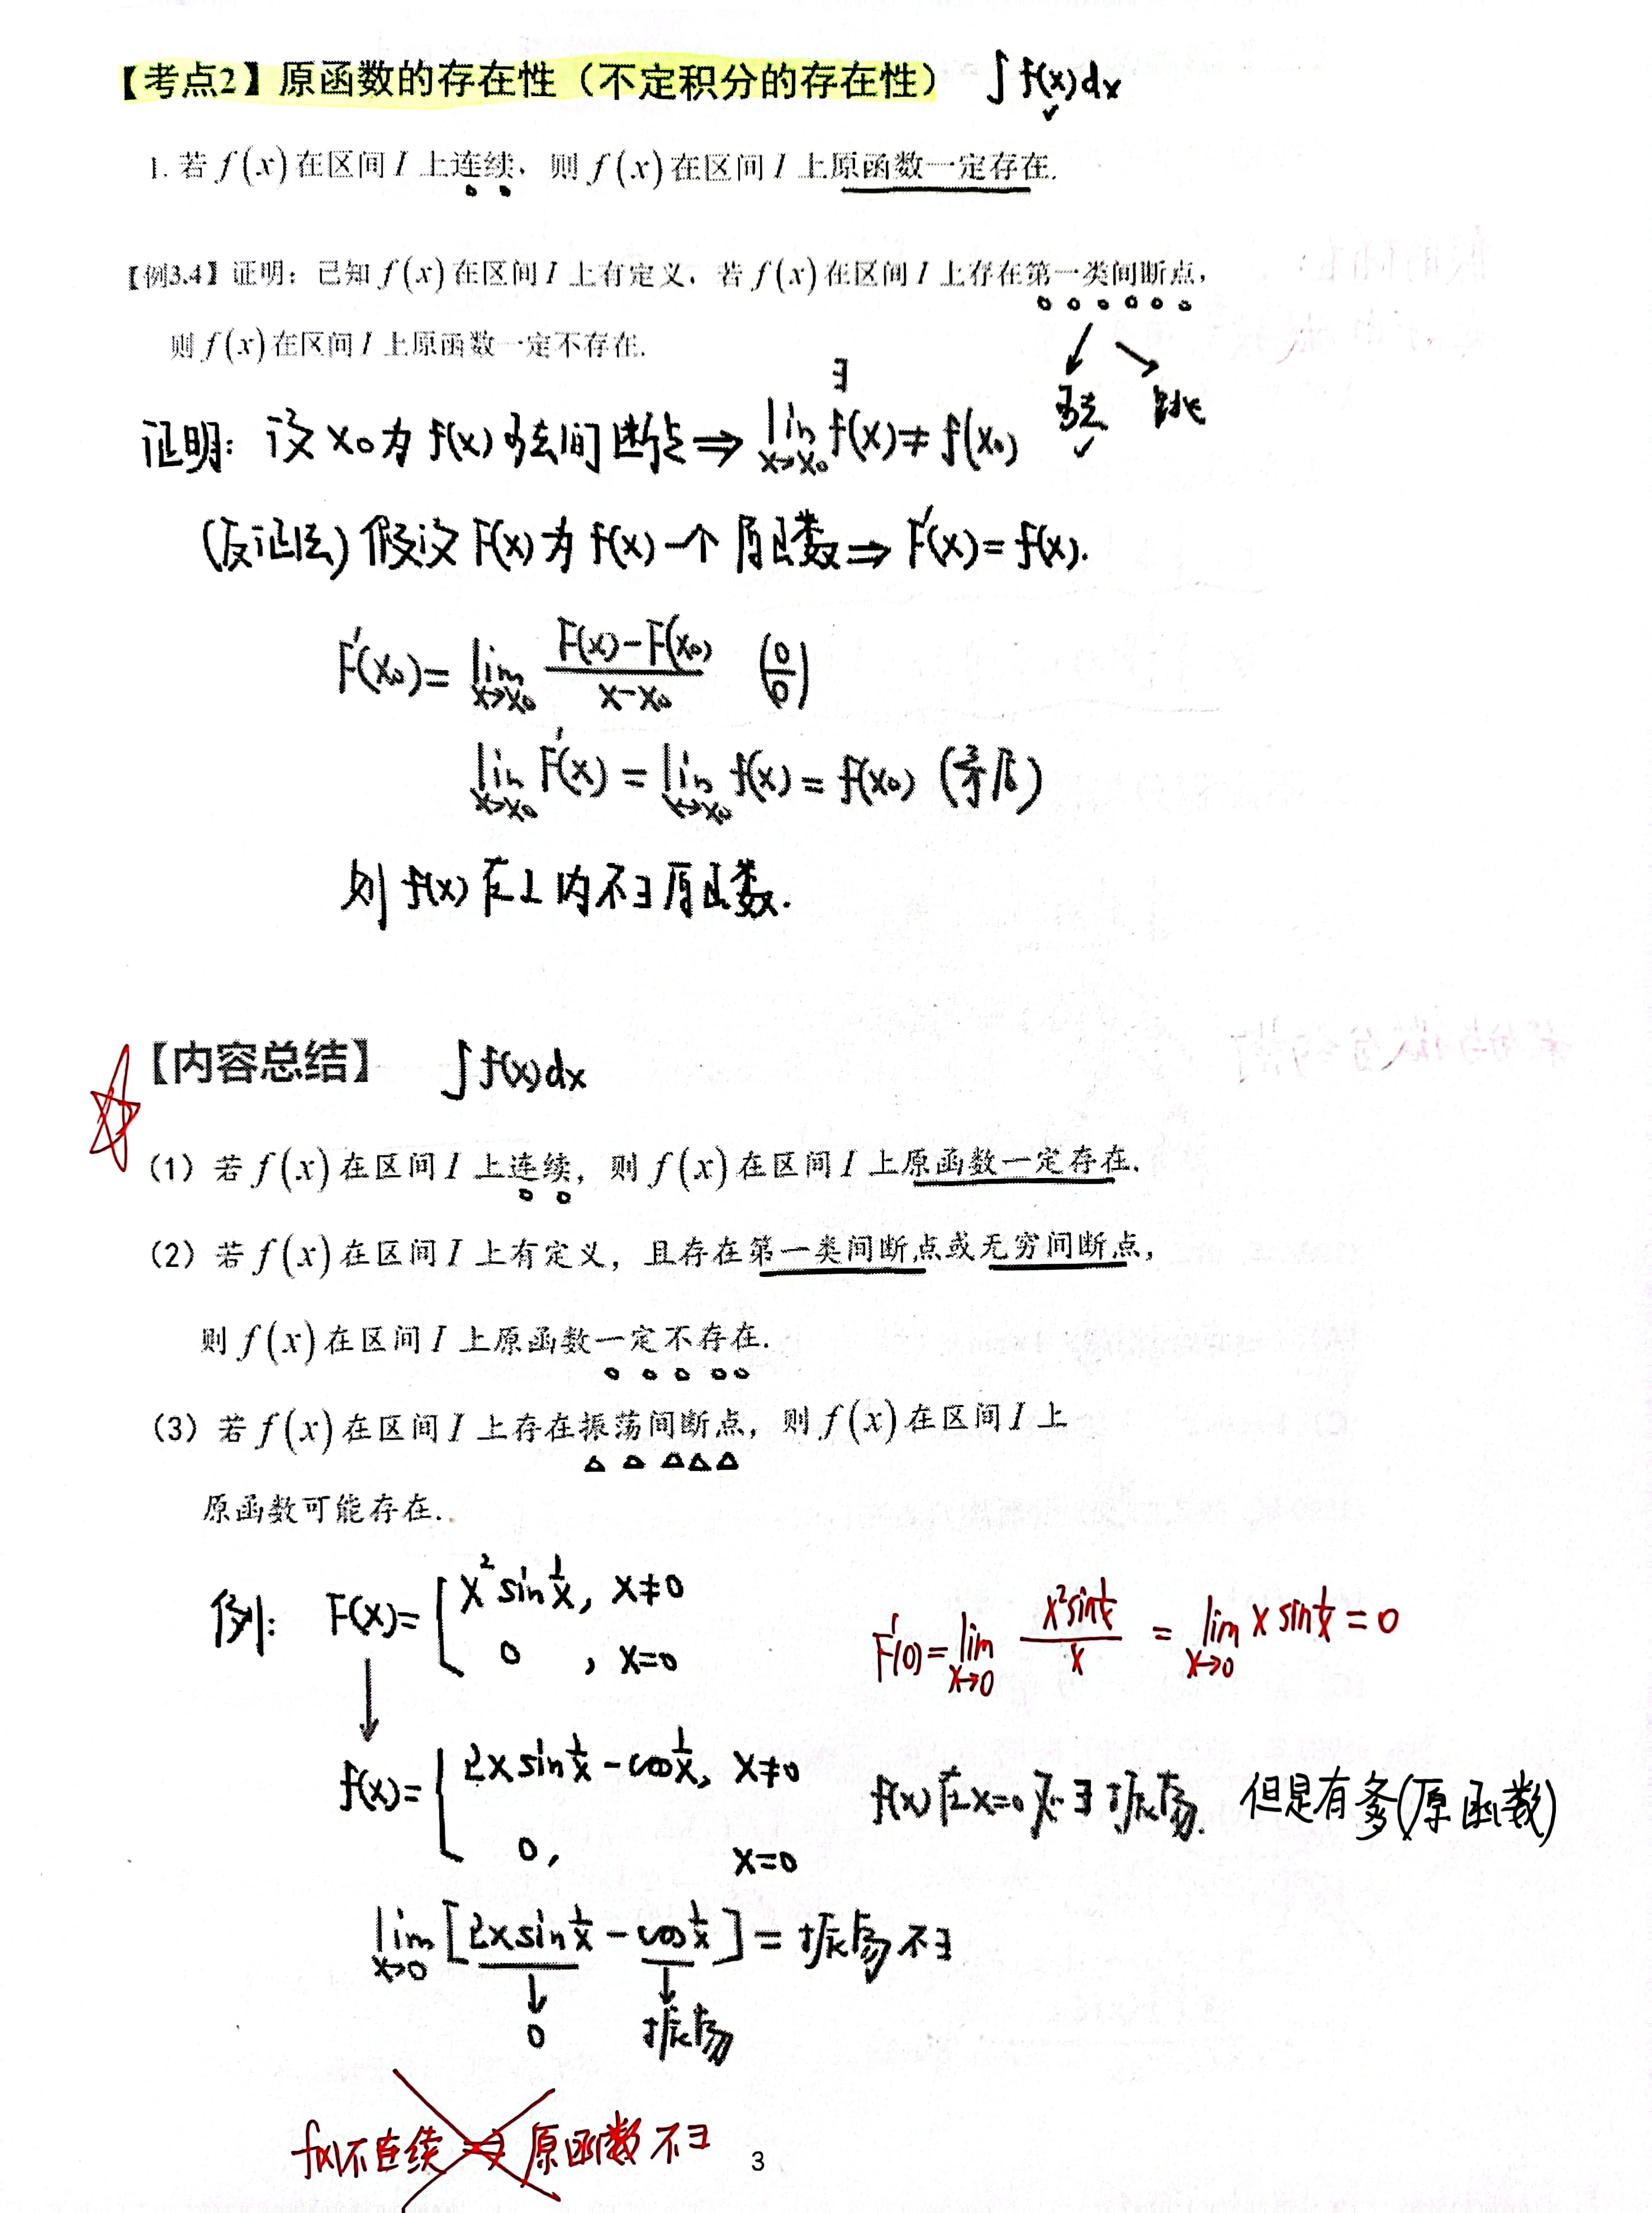 【考点2】原函数的存在性（不定积分的存在性） ∫f(x)dx
1. 若 f(x) 在区间 I 上连续，则 f(x) 在区间 I 上原函数一定存在.
【例3.4】证明：已知 f(x) 在区间 I 上有定义，若 f(x) 在区间 I 上存在第一类间断点，
则 f(x) 在区间 I 上原函数一定不存在.
∃
可去 跳
证明：设 x₀ 为 f(x) 可去间断点 ⇒ lim x→x₀ f(x) ≠ f(x₀)
(反证法) 假设 F(x) 为 f(x) 一个原函数 ⇒ F'(x) = f(x).
F'(x₀) = lim x→x₀ (F(x)-F(x₀))/(x-x₀) (0/0)
lim x→x₀ F'(x) = lim x→x₀ f(x) = f(x₀) (矛盾)
则 f(x) 在 I 内不∃原函数.
【内容总结】 ∫f(x)dx
（1）若 f(x) 在区间 I 上连续，则 f(x) 在区间 I 上原函数一定存在.
（2）若 f(x) 在区间 I 上有定义，且存在第一类间断点或无穷间断点，
则 f(x) 在区间 I 上原函数一定不存在.
（3）若 f(x) 在区间 I 上存在振荡间断点，则 f(x) 在区间 I 上
原函数可能存在.
例： F(x) = { x² sin 1/x, x≠0
0 , x=0
F'(0) = lim x→0 (x² sin 1/x)/x = lim x→0 x sin 1/x = 0
f(x) = { 2x sin 1/x - cos 1/x, x≠0
0, x=0
f(x) 在 x=0 处∃振荡. 但是有爹(原函数)
lim x→0 [2x sin 1/x - cos 1/x] = 振荡不∃
0 振荡
f(x)不连续 ⇒ 原函数不∃
3